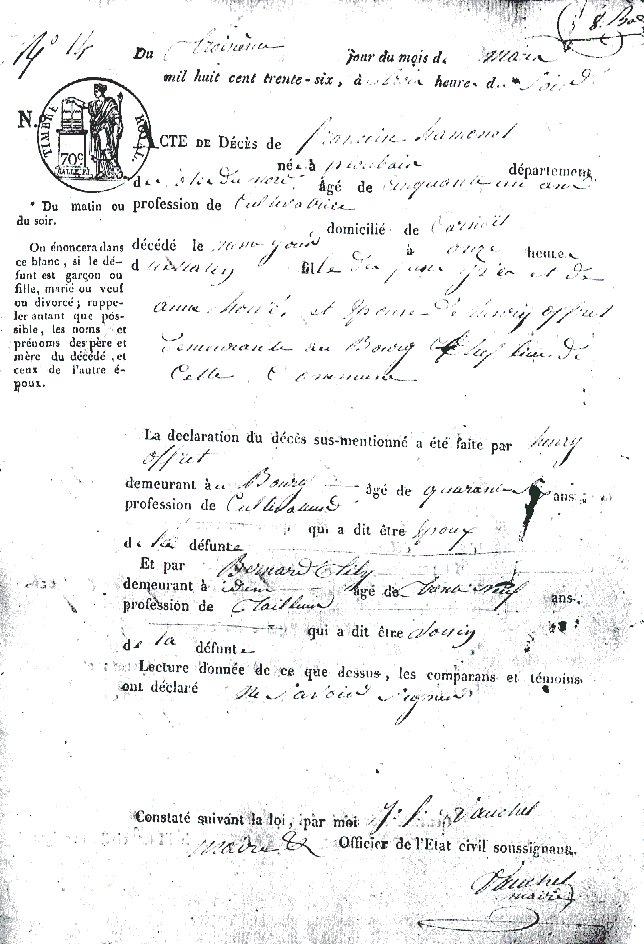 N° 14
8. Bo
Du troisième jour du mois de mars
mil huit cent trente-six, à heure du * soir
N.
TIMBRE ROYAL
70c
ACTE DE Décès de Francine
née à département
du âgé de cinquante un ans
profession de Cultivatrice
domicilié de Carnoët
décédé le même jour à onze heure
du fille de feu et de
anne et épouse de henry offret
demeurante au Bourg Chef lieu de
Cette Commune
* Du matin ou
du soir.
On énoncera dans
ce blanc, si le dé-
funt est garçon ou
fille, marié ou veuf
ou divorcé ; rappe-
ler autant que pos-
sible, les noms et
prénoms des père et
mère du décédé, et
ceux de l'autre é-
poux.
La declaration du décès sus-mentionné a été faite par henry
offret
demeurant au Bourg âgé de quarante ans
profession de Cultivateur
qui a dit être époux
de la défunte
Et par Bernard
demeurant à idem âgé de trente neuf ans.
profession de tailleur
qui a dit être voisin
de la défunte
Lecture donnée de ce que dessus, les comparans et témoins
ont déclaré ne savoir signer
Constaté suivant la loi, par moi J. f. Vauchel
maire & Officier de l'Etat civil soussignant.
Vauchel
maire